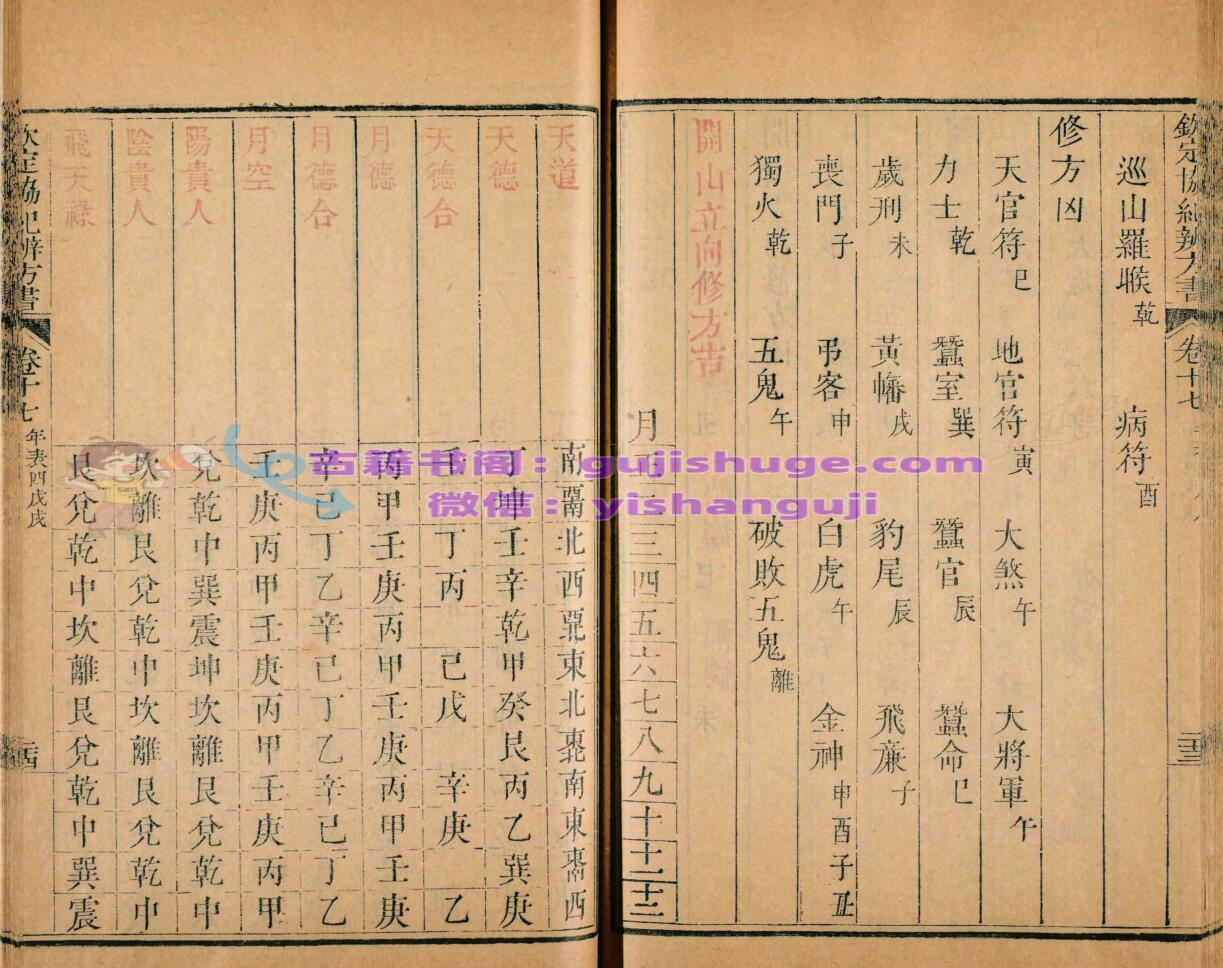 欽定協紀辨方書 卷十七
巡山羅㬋乾 病符酉
修方凶
天官符巳 地官符寅 大煞午 大將軍午
力士乾 蠶室巽 蠶官辰 蠶命巳
歲刑未 黃幡戌 豹尾辰 飛廉子
喪門子 弔客申 白虎午 金神申酉子丑
獨火乾 五鬼午 破敗五鬼離
開山立向修方吉
月正二三四五六七八九十十一十二
天道 南西南北西西北東北東北南東東南西
天德 丁坤壬辛乾甲癸艮丙乙巽庚
天德合 壬丁丙己戊辛庚乙
月德 丙甲壬庚丙甲壬庚丙甲壬庚
月德合 辛己丁乙辛己丁乙辛己丁乙
月空 壬庚丙甲壬庚丙甲壬庚丙甲
陽貴人 兌乾中巽震坤坎離艮兌乾中
陰貴人 坎離艮兌乾中坎離艮兌乾中
飛天祿 艮兌乾中坎離艮兌乾中巽震
欽定協紀辨方書 卷十七 年表四戊戌 二十四
古籍书阁：gujishuge.com
微信：yishanguji